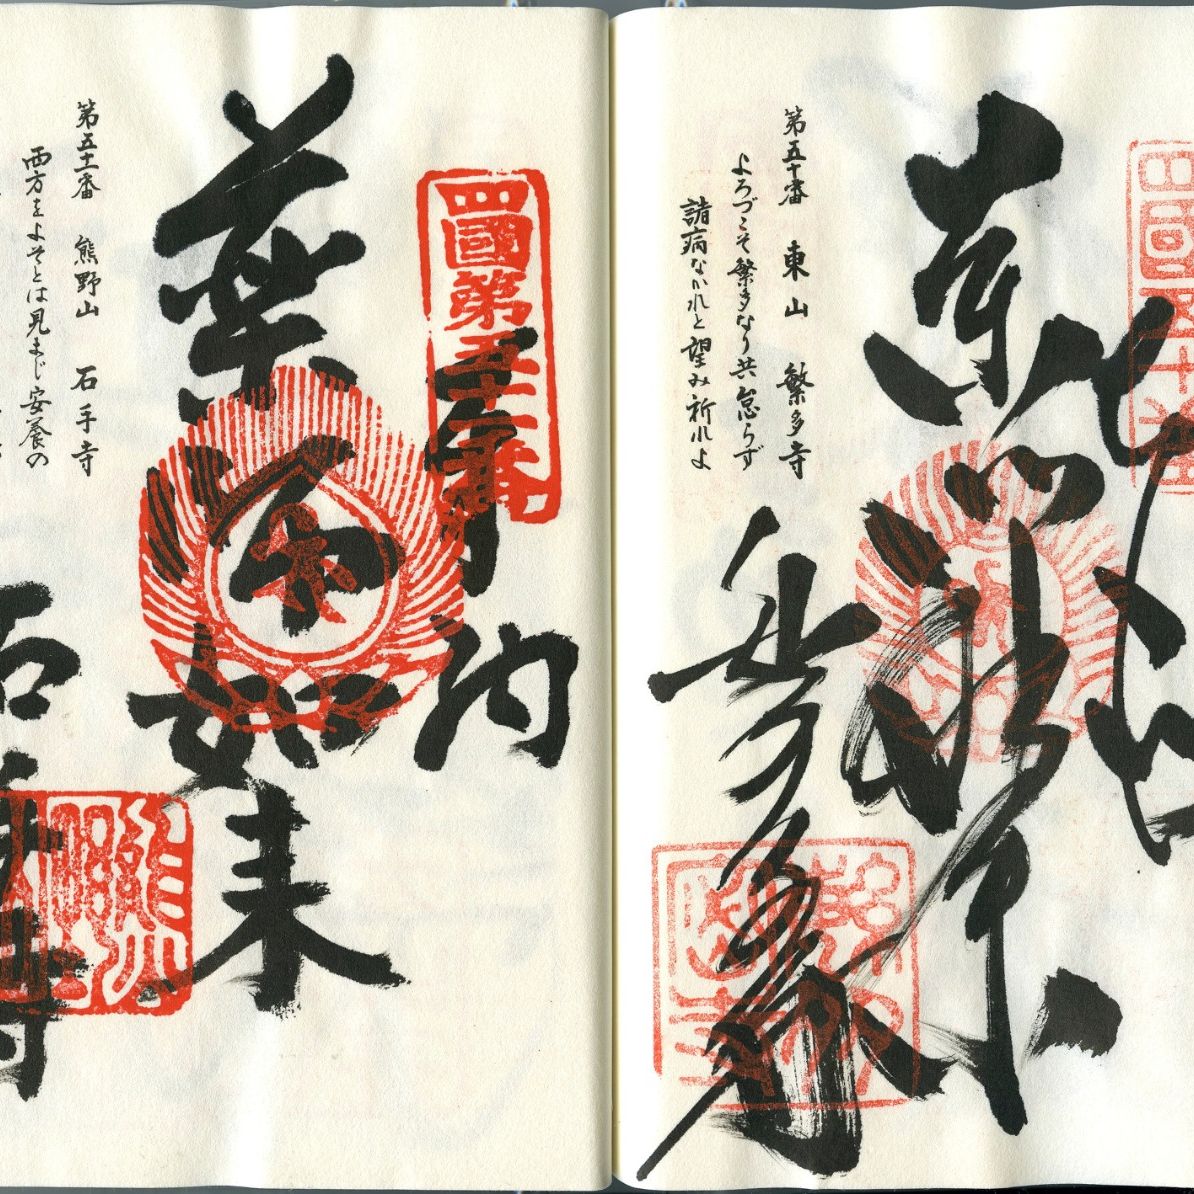 奉納
薬師如来
繁多寺
第五十番　東山　繁多寺
よろづこそ繁多なり共怠らず
諸病なかれと望み祈れよ
四國第五十一番
奉納
薬師如来
石手寺
第五十一番　熊野山　石手寺
西方をよそとは見まじ安養の